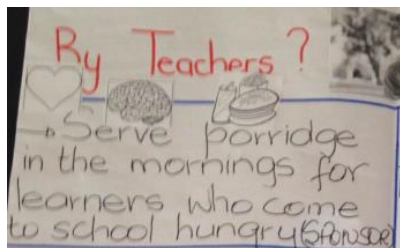 By Teachers?
→ Serve porridge
in the mornings for
learners who come
to school hungry (SPONSOR)